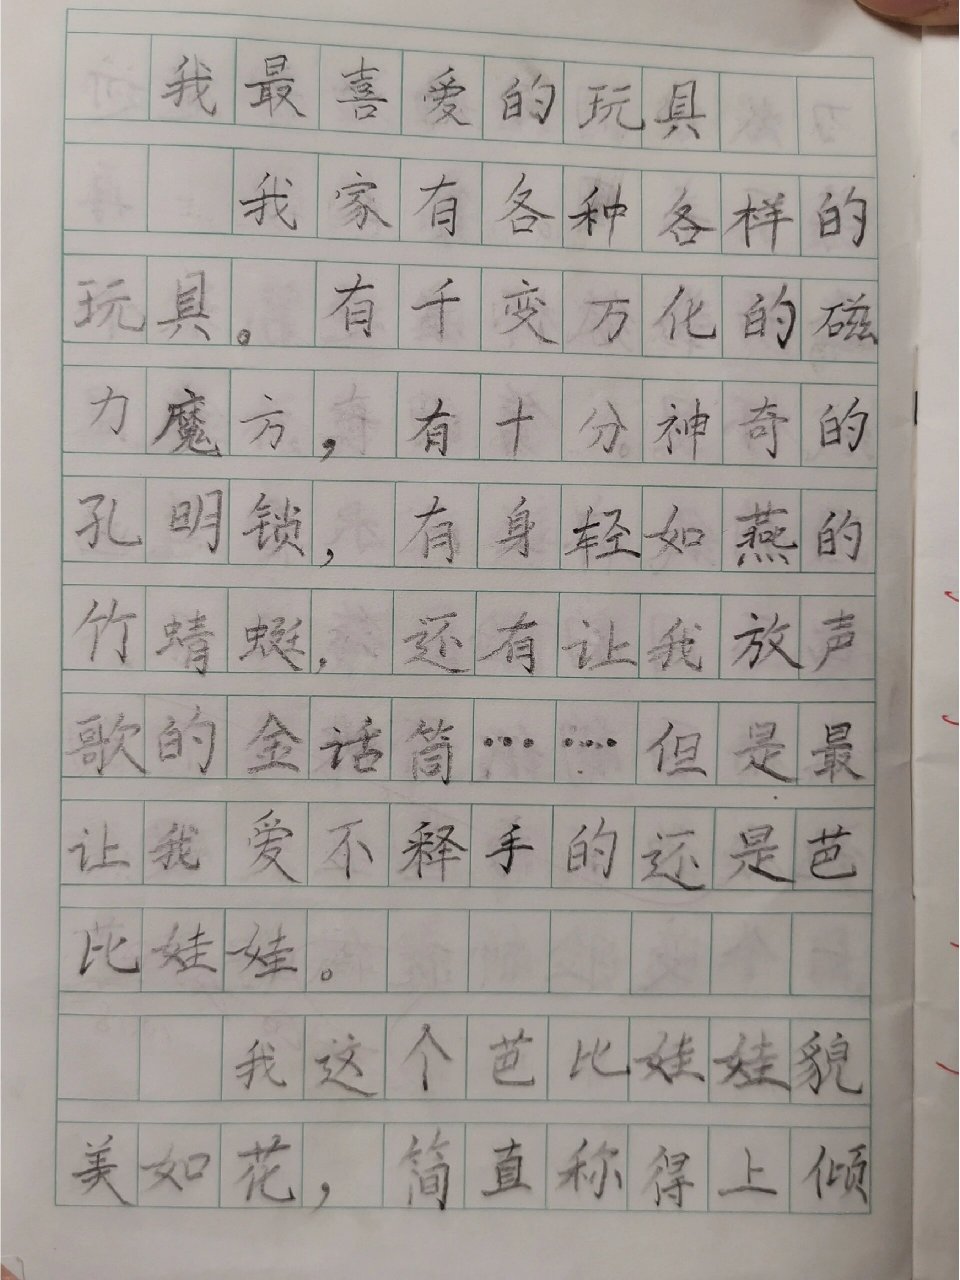 我最喜爱的玩具
我家有各种各样的
玩具。有千变万化的磁
力魔方，有十分神奇的
孔明锁，有身轻如燕的
竹蜻蜓，还有让我放声
歌的金话筒……但是最
让我爱不释手的还是芭
比娃娃。
我这个芭比娃娃貌
美如花，简直称得上倾